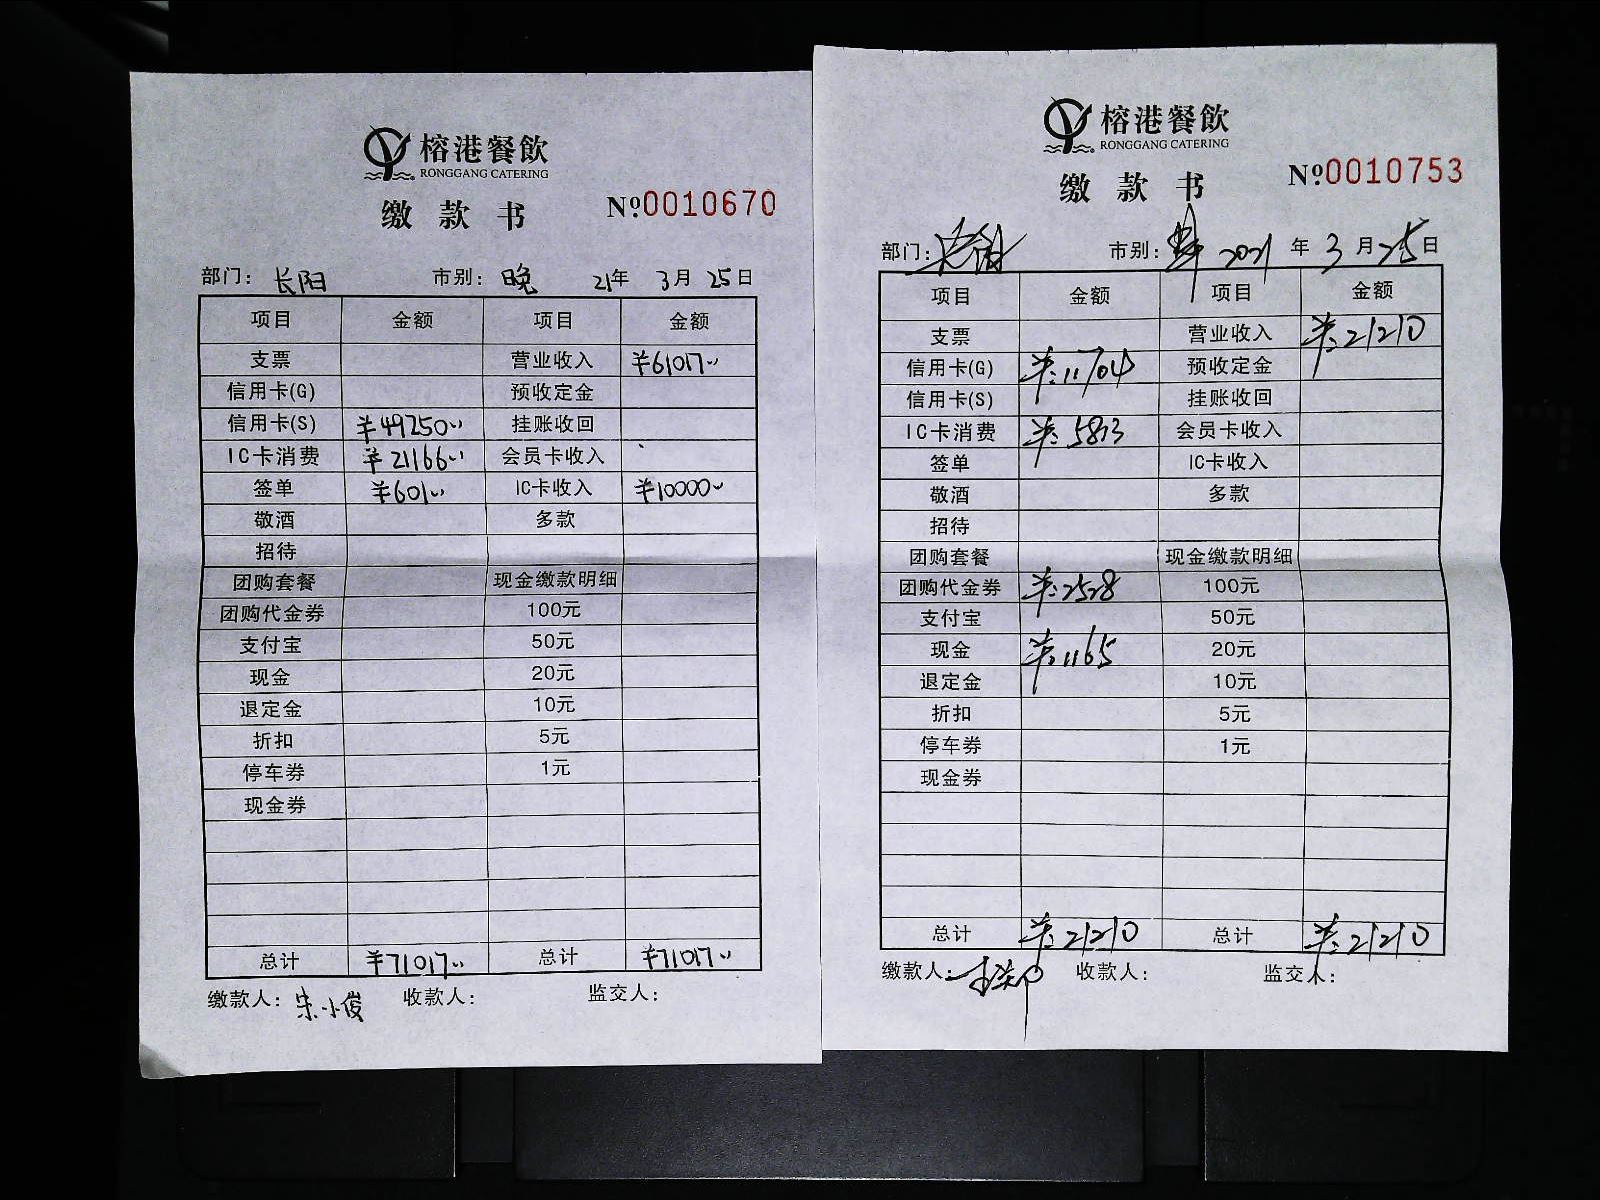 榕港餐飲
RONGGANG CATERING
缴款书
№0010670
部门：长阳 市别：晚 21年 3月 25日
项目 金额 项目 金额
支票 营业收入 ¥61017
信用卡(G) 预收定金
信用卡(S) ¥49250 挂账收回
IC卡消费 ¥21166 会员卡收入
签单 ¥601 IC卡收入 ¥10000
敬酒 多款
招待
团购套餐 现金缴款明细
团购代金券 100元
支付宝 50元
现金 20元
退定金 10元
折扣 5元
停车券 1元
现金券
总计 ¥71017 总计 ¥71017
缴款人：朱小俊 收款人： 监交人：
榕港餐飲
RONGGANG CATERING
缴款书
№0010753
部门： 市别： 2021年 3月25日
项目 金额 项目 金额
支票 营业收入 ¥:21210
信用卡(G) ¥:11704 预收定金
信用卡(S) 挂账收回
IC卡消费 ¥:5813 会员卡收入
签单 IC卡收入
敬酒 多款
招待
团购套餐 现金缴款明细
团购代金券 ¥:2528 100元
支付宝 50元
现金 ¥:1165 20元
退定金 10元
折扣 5元
停车券 1元
现金券
总计 ¥:21210 总计 ¥:21210
缴款人： 收款人： 监交人：